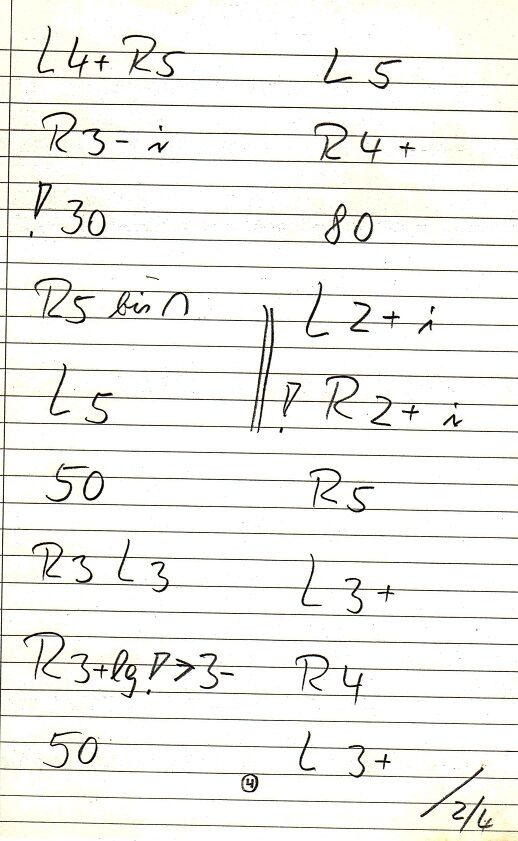 L4+ R5
R3- i
! 30
R5 bis ∩
L5
50
R3 L3
R3+lg! >3-
50
L5
R4+
80
L2+ i
! R2+ i
R5
L3+
R4
L3+
4
2/4